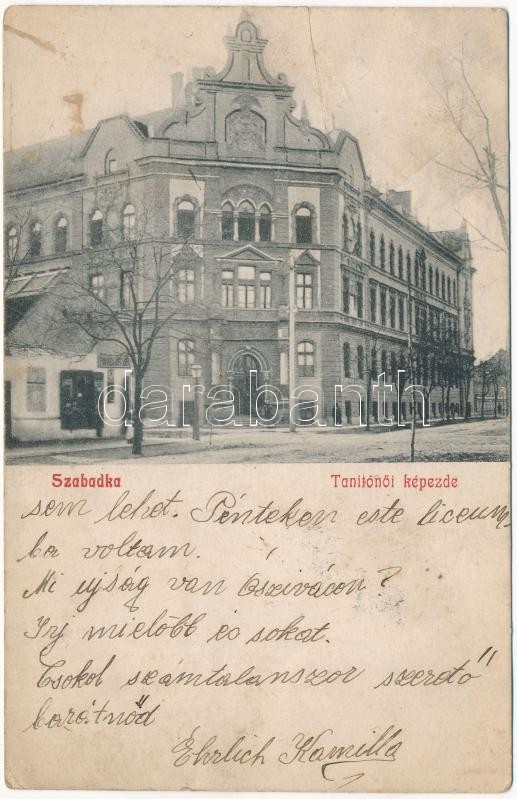 darabanth
Szabadka Tanitónői képezde
sem lehet. Pénteken este liceum-
ba voltam.
Mi ujság van Ószivácon?
Irj mielőbb és sokat.
Csokol számtalanszor szerető
barátnőd
Ehrlich Kamilla